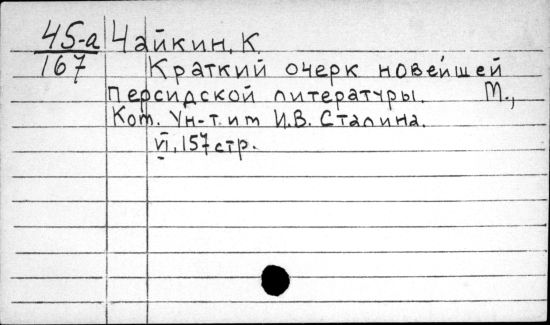 45-а Чайкин, К.
167 Краткий очерк новейшей
Персидской литературы. М.,
Ком. Ун-т. им И.В. Сталина.
VI, 157 стр.